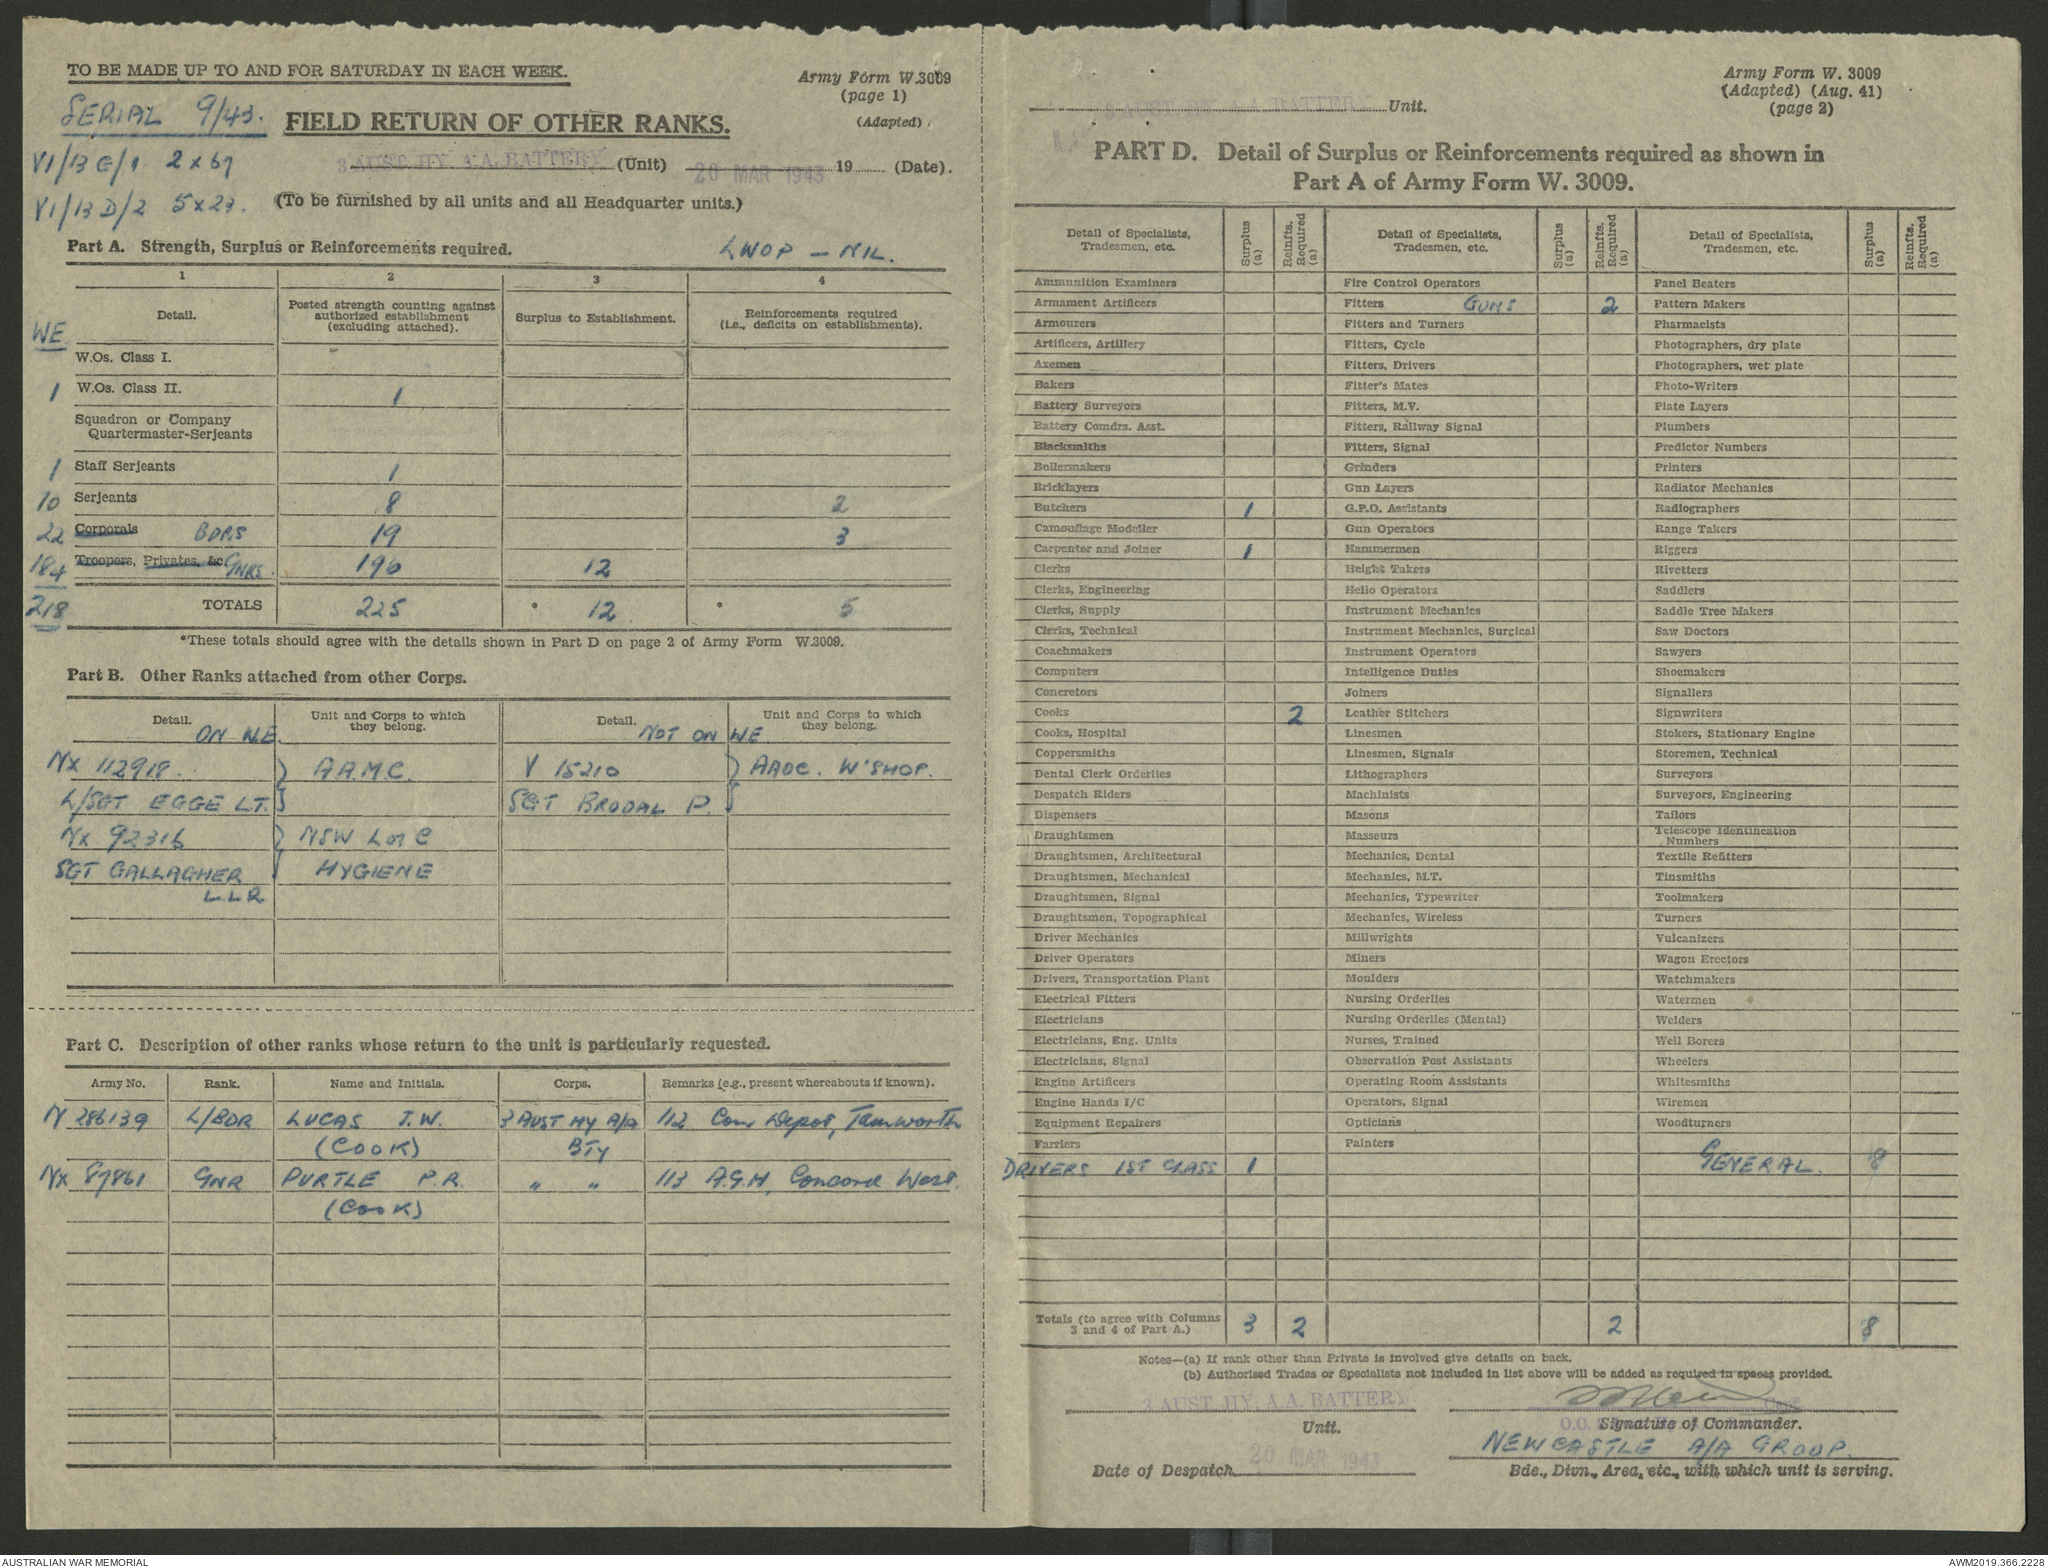 TO BE MADE UP TO AND FOR SATURDAY IN EACH WEEK.
Army Form W.3009
(page 1)
(Adapted)
SERIAL 9/43.
FIELD RETURN OF OTHER RANKS.
VI/13 G/1 2 x 67
3 AUST. HY. A.A. BATTERY (Unit) 20 MAR 1943 19 (Date).
VI/13 D/2 5 x 23.
(To be furnished by all units and all Headquarter units.)
Part A. Strength, Surplus or Reinforcements required.
LWOP - NIL.
1 2 3 4
WE
Detail. Posted strength counting against authorized establishment (excluding attached). Surplus to Establishment. Reinforcements required (i.e., deficits on establishments).
W.Os. Class I.
1 W.Os. Class II. 1
Squadron or Company
Quartermaster-Serjeants
1 Staff Serjeants 1
10 Serjeants 8 2
22 Corporals BDRS 19 3
184 Troopers, Privates, &c GNRS. 196 12
218 TOTALS 225 * 12 * 5
*These totals should agree with the details shown in Part D on page 2 of Army Form W.3009.
Part B. Other Ranks attached from other Corps.
Detail. Unit and Corps to which they belong. Detail. Unit and Corps to which they belong.
ON W.E. NOT ON WE.
NX 112918. } A.A.M.C. V 15210 } AAOC. W'SHOP.
L/SGT EGGE L.T. SGT BRODAL P.
NX 92316 } NSW L of C
SGT GALLAGHER HYGIENE
L.L.R
Part C. Description of other ranks whose return to the unit is particularly requested.
Army No. Rank. Name and Initials. Corps. Remarks (e.g., present whereabouts if known).
N 286139 L/BDR LUCAS J.W. 3 AUST HY A/A 112 Con Depot, Tamworth
(COOK) BTY
NX 87861 GNR PURTLE P.R. " " 113 A.G.H, Concord West.
(COOK)
Army Form W. 3009
(Adapted) (Aug. 41)
(page 2)
3 AUST. HY. A.A. BATTERY Unit.
PART D. Detail of Surplus or Reinforcements required as shown in
Part A of Army Form W. 3009.
Detail of Specialists, Tradesmen, etc. Surplus (a) Reinfts. Required (a) Detail of Specialists, Tradesmen, etc. Surplus (a) Reinfts. Required (a) Detail of Specialists, Tradesmen, etc. Surplus (a) Reinfts. Required (a)
Ammunition Examiners Fire Control Operators Panel Beaters
Armament Artificers Fitters GUNS 2 Pattern Makers
Armourers Fitters and Turners Pharmacists
Artificers, Artillery Fitters, Cycle Photographers, dry plate
Axemen Fitters, Drivers Photographers, wet plate
Bakers Fitter's Mates Photo-Writers
Battery Surveyors Fitters, M.V. Plate Layers
Battery Comdrs. Asst. Fitters, Railway Signal Plumbers
Blacksmiths Fitters, Signal Predictor Numbers
Boilermakers Grinders Printers
Bricklayers Gun Layers Radiator Mechanics
Butchers 1 G.P.O. Assistants Radiographers
Camouflage Modeller Gun Operators Range Takers
Carpenter and Joiner 1 Hammermen Riggers
Clerks Height Takers Rivetters
Clerks, Engineering Helio Operators Saddlers
Clerks, Supply Instrument Mechanics Saddle Tree Makers
Clerks, Technical Instrument Mechanics, Surgical Saw Doctors
Coachmakers Instrument Operators Sawyers
Computers Intelligence Duties Shoemakers
Concretors Joiners Signallers
Cooks 2 Leather Stitchers Signwriters
Cooks, Hospital Linesmen Stokers, Stationary Engine
Coppersmiths Linesmen, Signals Storemen, Technical
Dental Clerk Orderlies Lithographers Surveyors
Despatch Riders Machinists Surveyors, Engineering
Dispensers Masons Tailors
Draughtsmen Masseurs Telescope Identification Numbers
Draughtsmen, Architectural Mechanics, Dental Textile Refitters
Draughtsmen, Mechanical Mechanics, M.T. Tinsmiths
Draughtsmen, Signal Mechanics, Typewriter Toolmakers
Draughtsmen, Topographical Mechanics, Wireless Turners
Driver Mechanics Millwrights Vulcanizers
Driver Operators Miners Wagon Erectors
Drivers, Transportation Plant Moulders Watchmakers
Electrical Fitters Nursing Orderlies Watermen
Electricians Nursing Orderlies (Mental) Welders
Electricians, Eng. Units Nurses, Trained Well Borers
Electricians, Signal Observation Post Assistants Wheelers
Engine Artificers Operating Room Assistants Whitesmiths
Engine Hands I/C Operators, Signal Wiremen
Equipment Repairers Opticians Woodturners
Farriers Painters
DRIVERS 1ST CLASS 1 GENERAL. 8
Totals (to agree with Columns 3 and 4 of Part A.) 3 2 2 8
Notes—(a) If rank other than Private is involved give details on back.
(b) Authorised Trades or Specialists not included in list above will be added as required in spaces provided.
3 AUST. HY. A.A. BATTERY
Unit.
O.C.
Signature of Commander.
20 MAR 1943
NEWCASTLE A/A GROUP.
Date of Despatch
Bde., Divn., Area, etc., with which unit is serving.
AUSTRALIAN WAR MEMORIAL
AWM2019.366.2228